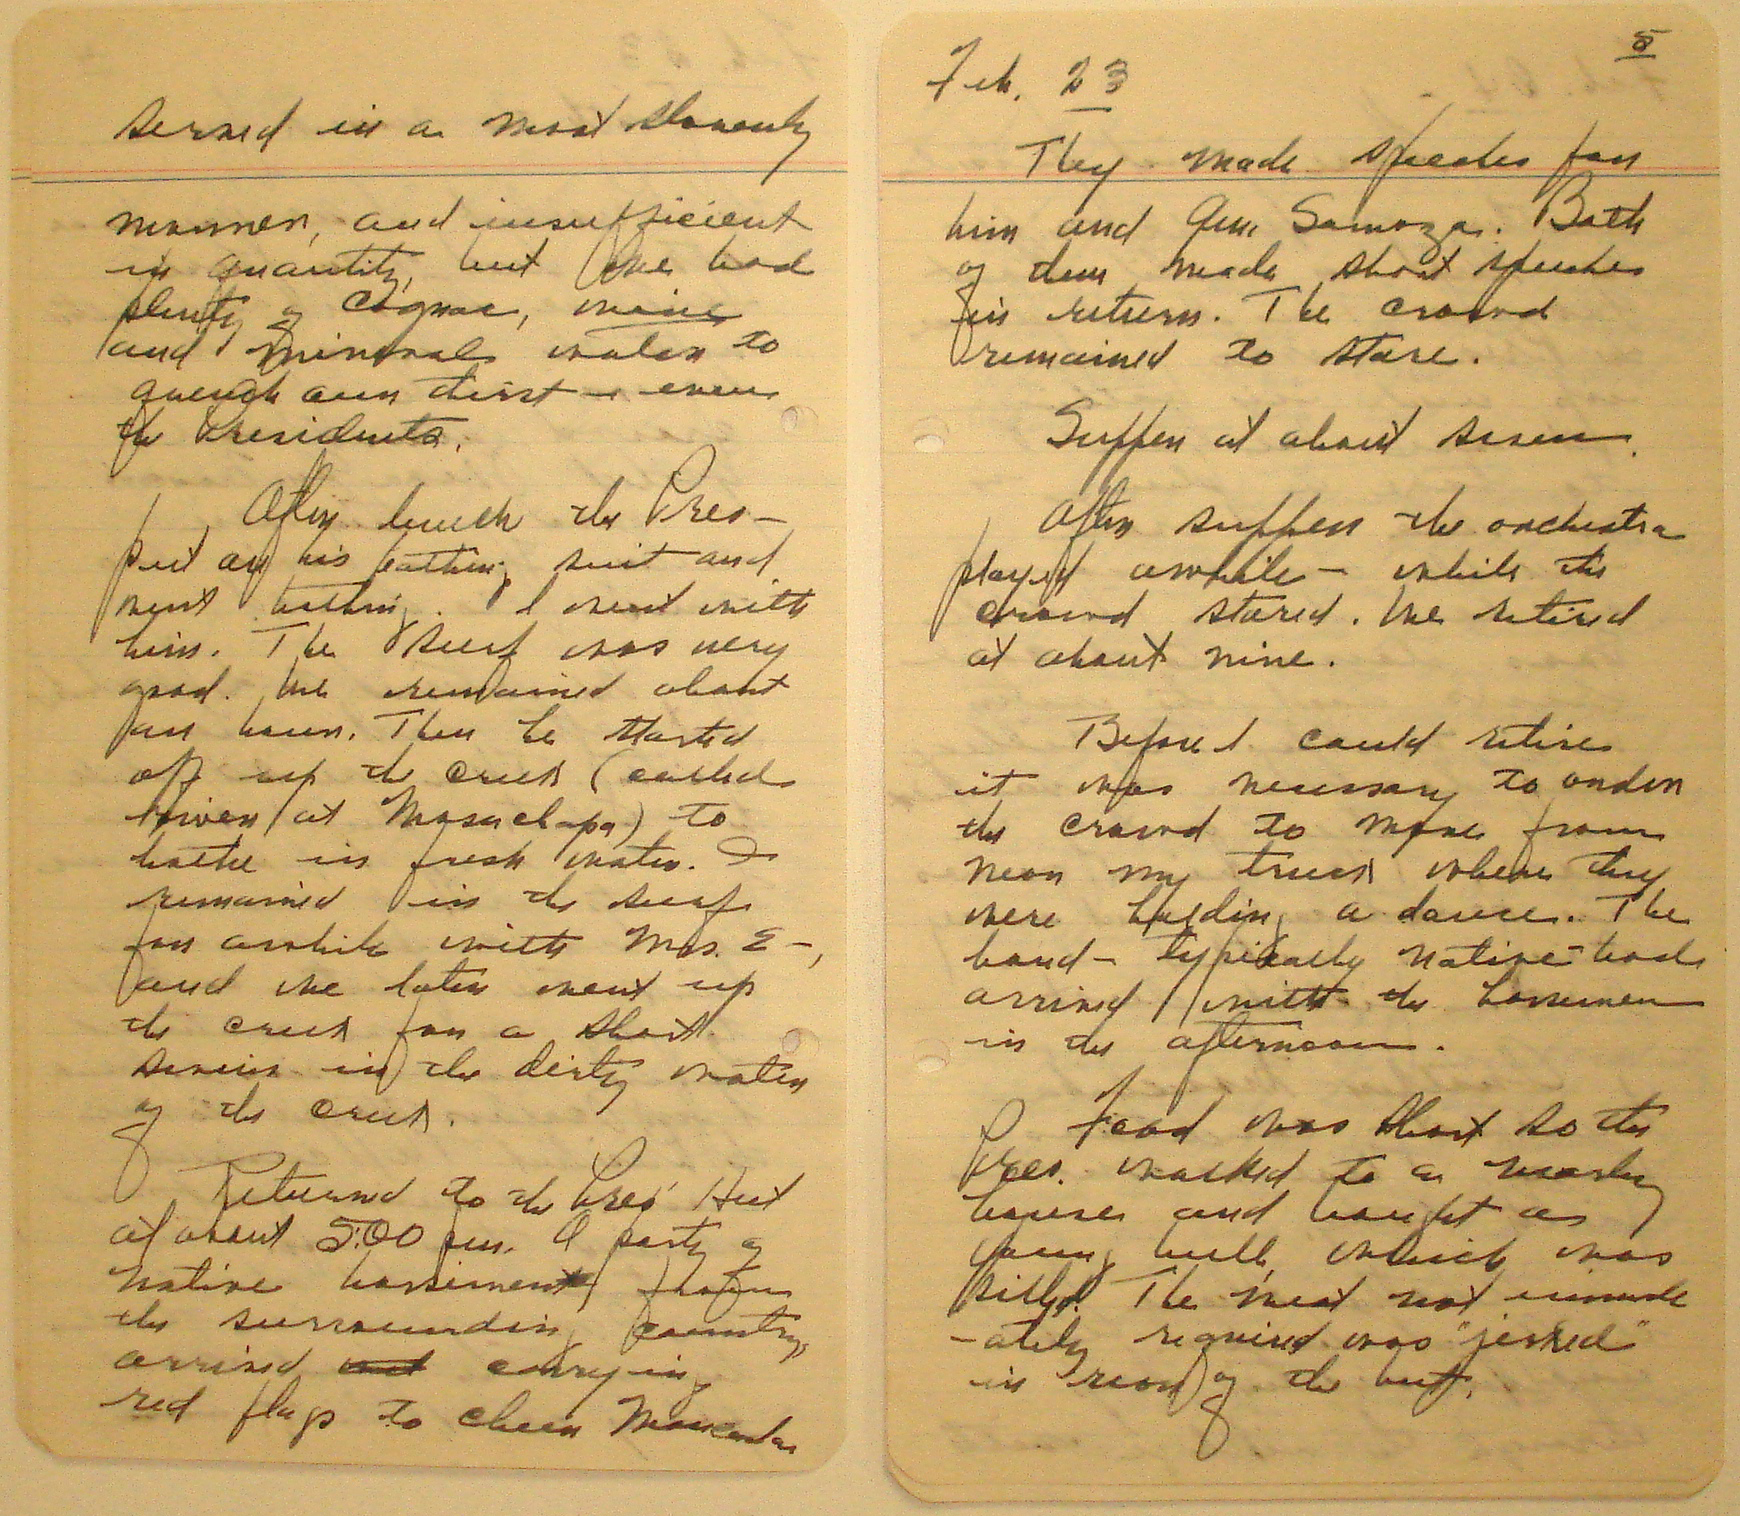 served in a most slovenly
manner, and insufficient
in quantity, but we had
plenty of Cognac, wine
and mineral water to
quench our thirst – even
the Presidents.
After lunch the Pres –
put on his bathing suit and
went bathing. I went with
him. The surf was very
good. We remained about
an hour. Then he started
off up the creek (called
river at Masachapa) to
bathe in fresh water. I
remained in the surf
for awhile with Mrs. E –,
and we later went up
the creek for a short
swim in the dirty water
of the creek.
Returned to the Pres' Hut
at about 5:00 pm. A party of
native horsemen from
the surrounding country
arrived and carrying
red flags to cheer Moncada
8
Feb. 23
They made speeches for
him and Gen. Somoza. Both
of them made short speeches
in return. The crowd
remained to stare.
Supper at about seven.
After supper the orchestra
played awhile – while the
crowd stared. We retired
at about nine.
Before I could retire
it was necessary to order
the crowd to move from
near my truck where they
were holding a dance. The
band – typically native – had
arrived with the horsemen
in the afternoon.
Food was short so the
Pres. walked to a nearby
house and bought a
young bull, which was
killed. The meat not immedi
-ately required was "jerked"
in rear of the hut.